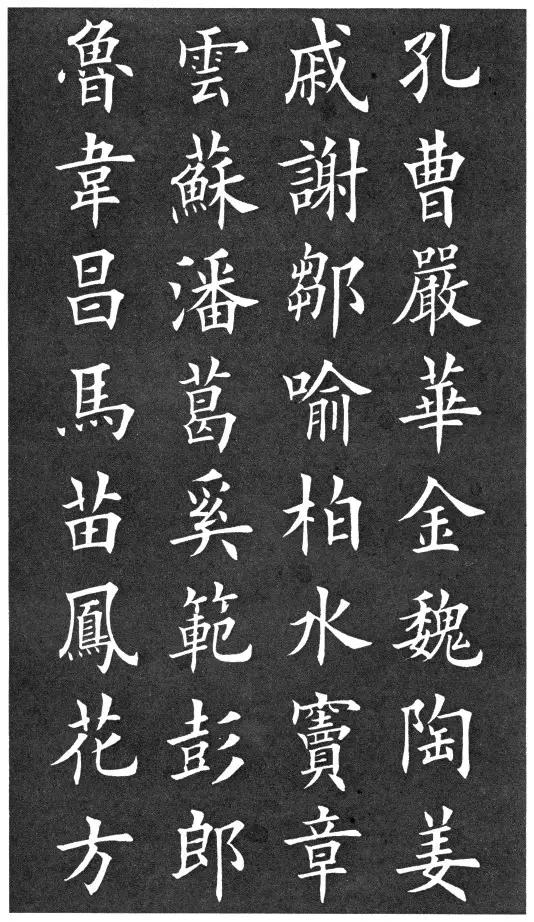 孔曹嚴華金魏陶姜
戚謝鄒喻柏水竇章
雲蘇潘葛奚範彭郎
魯韋昌馬苗鳳花方